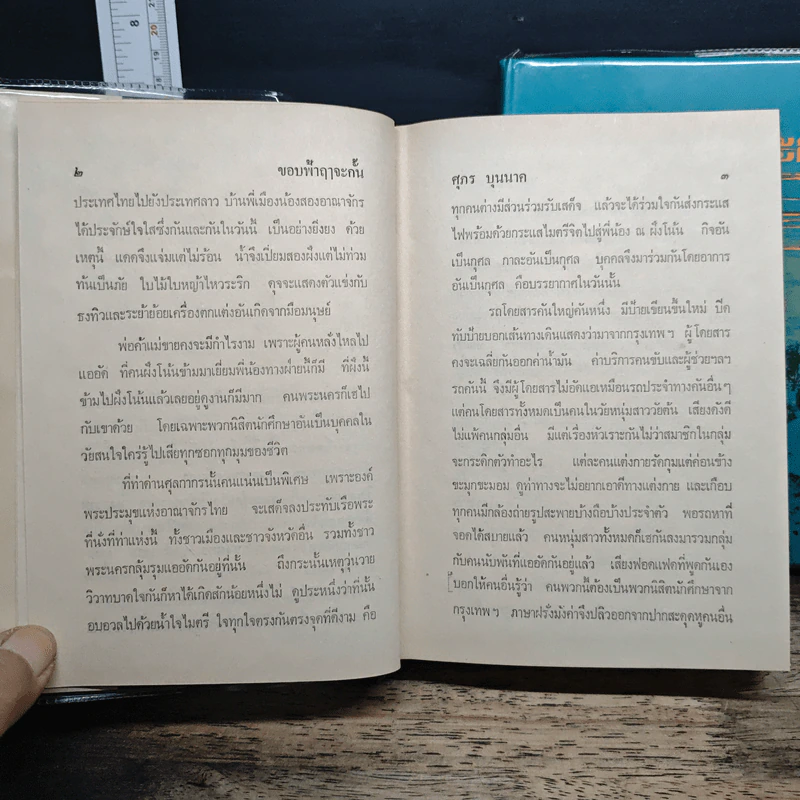 ๒ ขอบฟ้าฤๅจะกั้น
ประเทศไทยไปยังประเทศลาว บ้านพี่เมืองน้องสองอาณาจักร
ได้ประจักษ์ใจใสซึ่งกันและกันในวันนี้ เป็นอย่างยิ่งยง ด้วย
เหตุนี้ แดดจึงแจ่มแต่ไม่ร้อน น้ำจึงเปี่ยมสองฝั่งแต่ไม่ท่วม
ทันเป็นภัย ใบไม้ใบหญ้าไหวระริก ดุจจะแสดงตัวแข่งกับ
ธงทิวและระย้าย้อยเครื่องตกแต่งอันเกิดจากมือมนุษย์
พ่อค้าแม่ขายคงจะมีกำไรงาม เพราะผู้คนหลั่งไหลไป
แออัด ที่คนฝั่งโน้นข้ามมาเยี่ยมพี่น้องทางฝ่ายนี้ก็มี ที่ฝั่งนี้
ข้ามไปฝั่งโน้นแล้วเลยอยู่ดูงานก็มีมาก คนพระนครก็เฮไป
กับเขาด้วย โดยเฉพาะพวกนิสิตนักศึกษาอันเป็นบุคคลใน
วัยสนใจใคร่รู้ไปเสียทุกซอกทุกมุมของชีวิต
ที่ท่าด่านศุลกากรนั้นคนแน่นเป็นพิเศษ เพราะองค์
พระประมุขแห่งอาณาจักรไทย จะเสด็จลงประทับเรือพระ
ที่นั่งที่ท่าแห่งนี้ ทั้งชาวเมืองและชาวจังหวัดอื่น รวมทั้งชาว
พระนครกลุ้มรุมแออัดกันอยู่ที่นั้น ถึงกระนั้นเหตุวุ่นวาย
วิวาทบาดใจกันก็หาได้เกิดสักน้อยหนึ่งไม่ ดูประหนึ่งว่าที่นั้น
อบอวลไปด้วยน้ำใจไมตรี ใจทุกใจตรงกันตรงจุดที่ดีงาม คือ
ศุภร บุนนาค ๓
ทุกคนต่างมีส่วนร่วมรับเสด็จ แล้วจะได้ร่วมใจกันส่งกระแส
ไฟพร้อมด้วยกระแสไมตรีจิตไปสู่พี่น้อง ณ ฝั่งโน้น กิจอัน
เป็นกุศล กาละอันเป็นกุศล บุคคลจึงมาร่วมกันโดยอาการ
อันเป็นกุศล คือบรรยากาศในวันนั้น
รถโดยสารคันใหญ่คันหนึ่ง มีป้ายเขียนขึ้นใหม่ ปิด
ทับป้ายบอกเส้นทางเดินแสดงว่ามาจากกรุงเทพฯ ผู้โดยสาร
คงจะเฉลี่ยกันออกค่าน้ำมัน ค่าบริการคนขับและผู้ช่วยฯลฯ
รถคันนี้ จึงมีผู้โดยสารไม่อัดแอเหมือนรถประจำทางคันอื่นๆ
แต่คนโดยสารทั้งหมดเป็นคนในวัยหนุ่มสาววัยต้น เสียงดังดี
ไม่แพ้คนกลุ่มอื่น มีแต่เรื่องหัวเราะกันไม่ว่าสมาชิกในกลุ่ม
จะกระดิกตัวทำอะไร แต่ละคนแต่งกายรัดกุมแต่ค่อนข้าง
ขะมุกขะมอม ดูท่าทางจะไม่อยากเอาดีทางแต่งกาย และเกือบ
ทุกคนมีกล้องถ่ายรูปสะพายบ้างถือบ้างประจำตัว พอรถหาที่
จอดได้สบายแล้ว คนหนุ่มสาวทั้งหมดก็เฮกันลงมารวมกลุ่ม
กับคนนับพันที่แออัดกันอยู่แล้ว เสียงฟอดแฟดที่พูดกันเอง
บอกให้คนอื่นรู้ว่า คนพวกนี้ต้องเป็นพวกนิสิตนักศึกษาจาก
กรุงเทพฯ ภาษาฝรั่งมังค่าจึงปลิวออกจากปากสะดุดหูคนอื่น
8
20
19
18